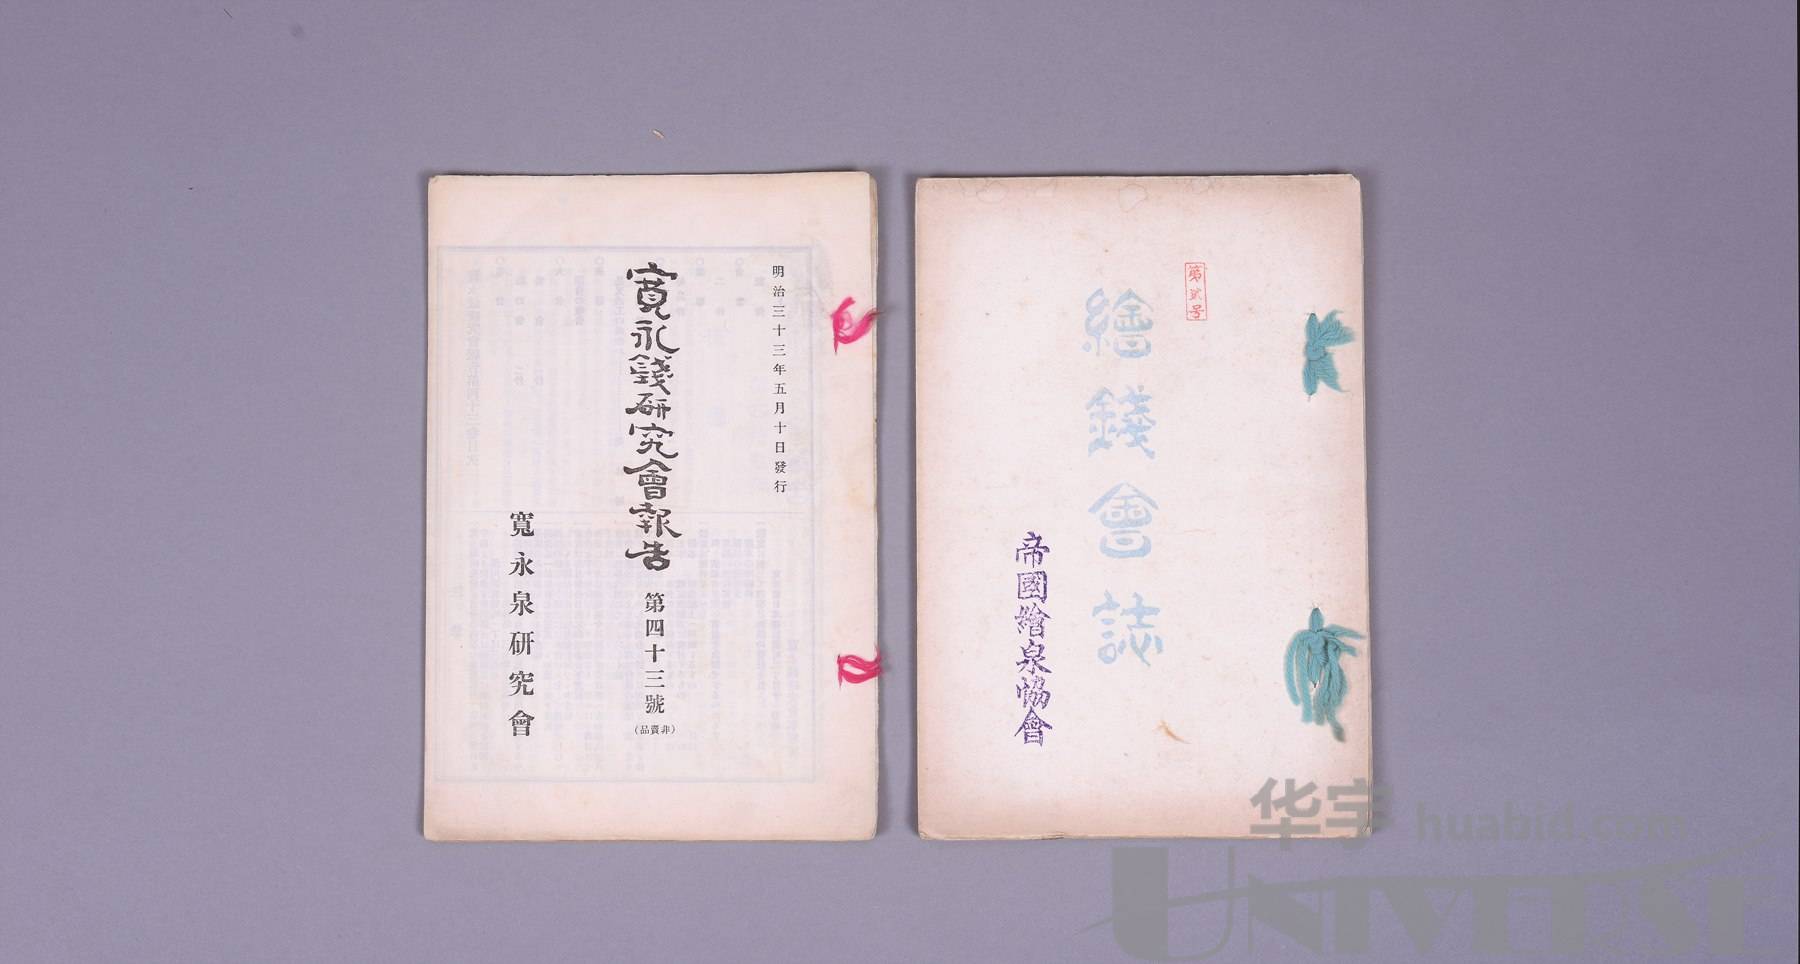 明治三十三年五月十日發行
寬永錢研究會報告 第四十三號
(非賣品)
寬永泉研究會
第貳号
繪錢會誌
帝國繪泉協會
华宇 huabid.com
UNIVERSE